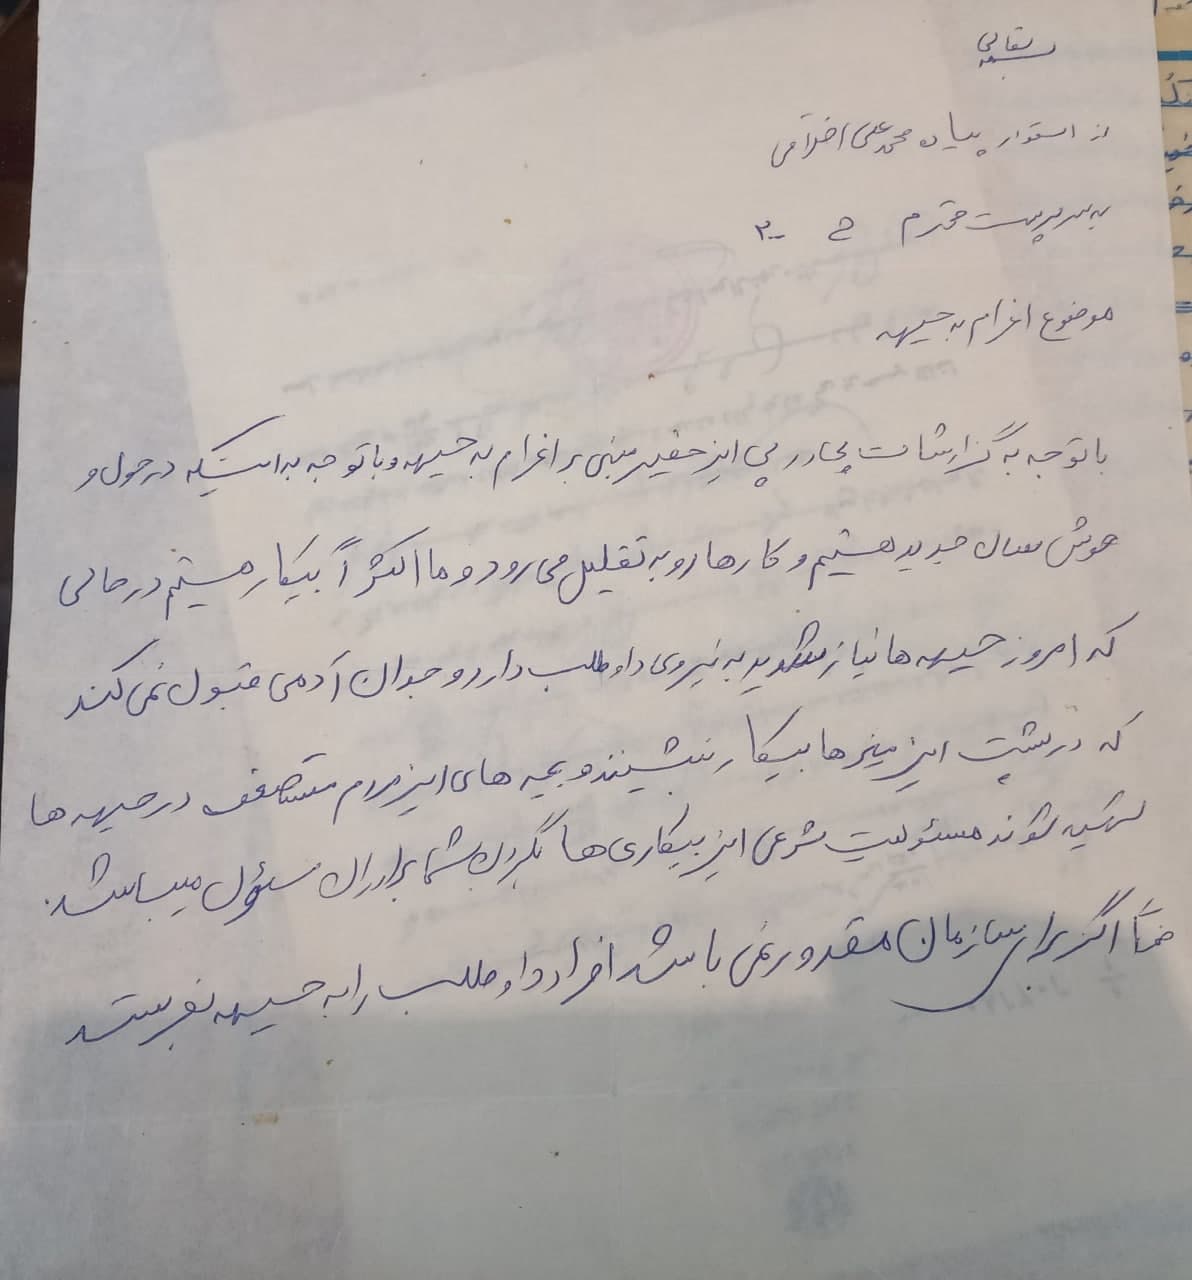 بسمه تعالی
از استوار پیاده محمدعلی اخلاقی
به سرپرست محترم ح ۲۰
موضوع اغرام به جبهه
با توجه به گزارشات پی در پی این حقیر مبنی بر اغرام به جبهه و با توجه به اینکه در حول و
حوش سال جدید هستیم و کارها رو به تقلیل می رود و ما اکثراً بیکار هستیم در حالی
که امروز جبهه ها نیاز شدید به نیروی داوطلب دارد و جدان آدمی قبول نمی کند
که در پشت این میزها بیکار بنشیند و بچه های این مردم مستضعف در جبهه ها
شهید شوند مسئولیت شرعی این بیکاری ها بگردن شما برادران مسئول میباشد.
ضمناً اگر برای سازمان مقدور نمی باشد افراد داوطلب را به جبهه بفرستد